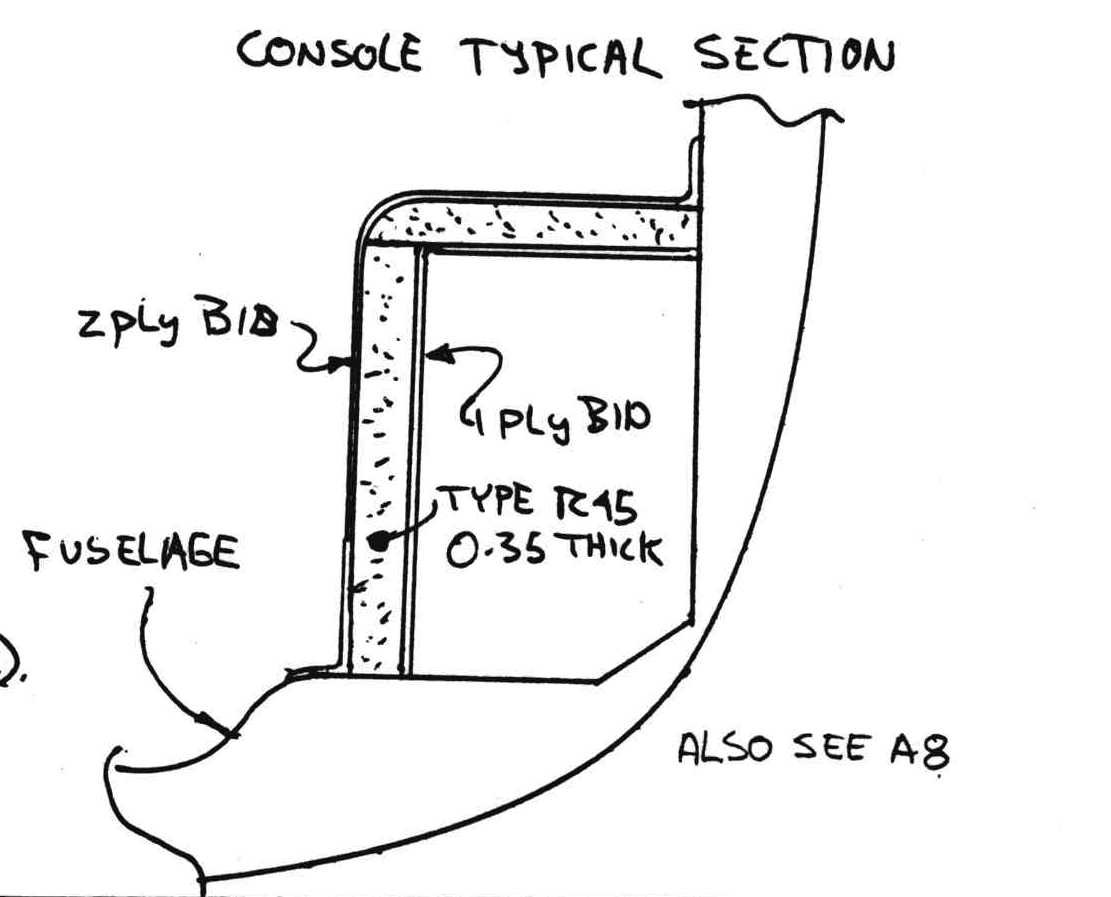 CONSOLE TYPICAL SECTION
2 PLY BID
1 PLY BID
TYPE R45
0.35 THICK
FUSELAGE
).
ALSO SEE A8